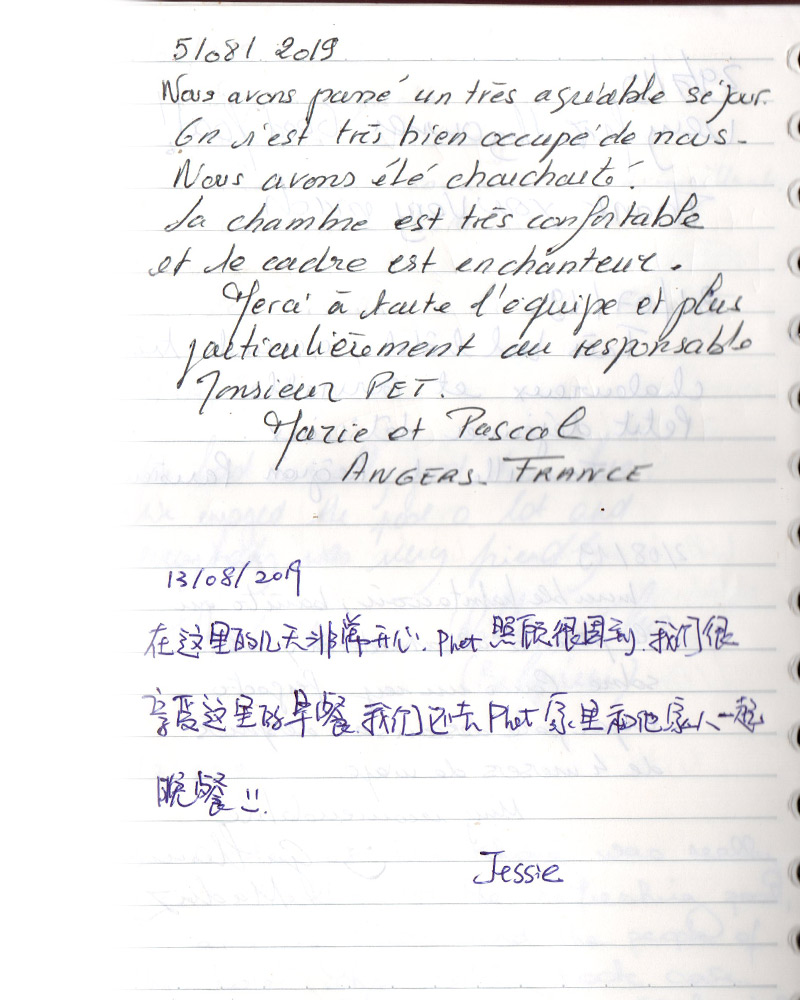 5/08/2019
Nous avons passé un très agréable séjour.
On s'est très bien occupé de nous.
Nous avons été chouchouté.
La chambre est très confortable
et le cadre est enchanteur.
Merci à toute l'équipe et plus
particulièrement au responsable
Monsieur PET.
Marie et Pascal
ANGERS. FRANCE
13/08/2019
在这里的几天非常开心. Phet 照顾很周到. 我们很
享受这里的早餐. 我们还去 Phet 家里和他家人一起
晚餐 !!
Jessie